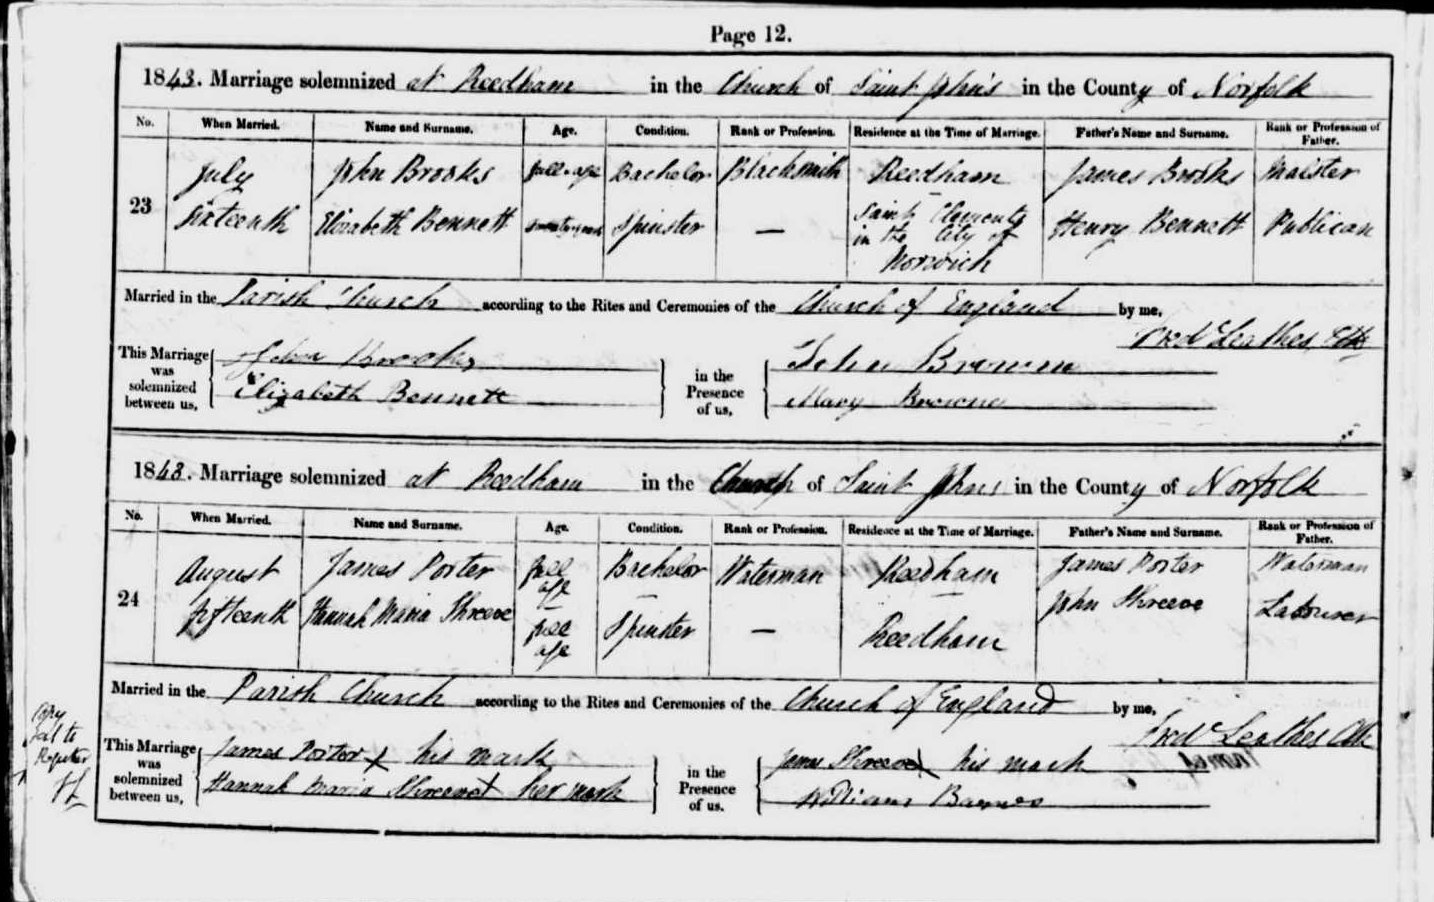 Page 12.
1843. Marriage solemnized at Reedham in the Church of Saint John's in the County of Norfolk
No. When Married. Name and Surname. Age. Condition. Rank or Profession. Residence at the Time of Marriage. Father's Name and Surname. Rank or Profession of Father.
23
July John Brooks full age Bachelor Blacksmith Reedham James Brooks Malster
Sixteenth Elizabeth Bennett Spinster — Saint Clements in the City of Norwich Henry Bennett Publican
Married in the Parish Church according to the Rites and Ceremonies of the Church of England by me,
Fredk Leathes
This Marriage was solemnized between us, John Brooks in the Presence of us, John Brown
Elizabeth Bennett Mary Browne
1843. Marriage solemnized at Reedham in the Church of Saint Johns in the County of Norfolk
No. When Married. Name and Surname. Age. Condition. Rank or Profession. Residence at the Time of Marriage. Father's Name and Surname. Rank or Profession of Father.
24
August James Porter full age Bachelor Waterman Reedham James Porter Waterman
fifteenth Hannah Maria Shreeve full age Spinster — Reedham John Shreeve Labourer
Married in the Parish Church according to the Rites and Ceremonies of the Church of England by me,
Fredk Leathes
This Marriage was solemnized between us, James Porter X his mark in the Presence of us. James Shreeve X his mark
Hannah Maria Shreeve X her mark William Barnes
Copy
to
Register